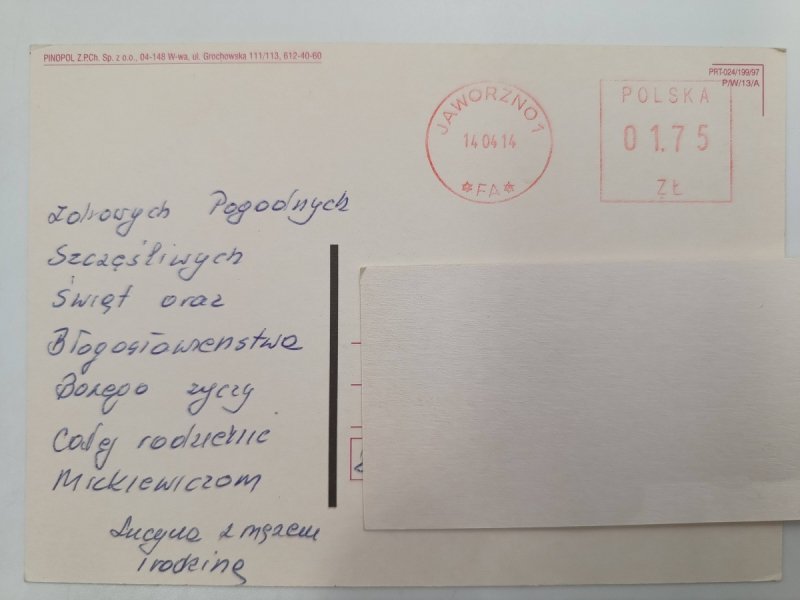 PINOPOL Z.P.Ch. Sp. z o.o., 04-148 W-wa, ul. Grochowska 111/113, 612-40-60
PRT-024/199/97
P/W/13/A
JAWORZNO 1
14 04 14
*FA*
POLSKA
01.75
ZŁ
Zdrowych Pogodnych
Szczęśliwych
Świąt oraz
Błogosławieństwa
Bożego życzy
Całej rodzinie
Mickiewiczom
Lucyna z mężem
i rodziną